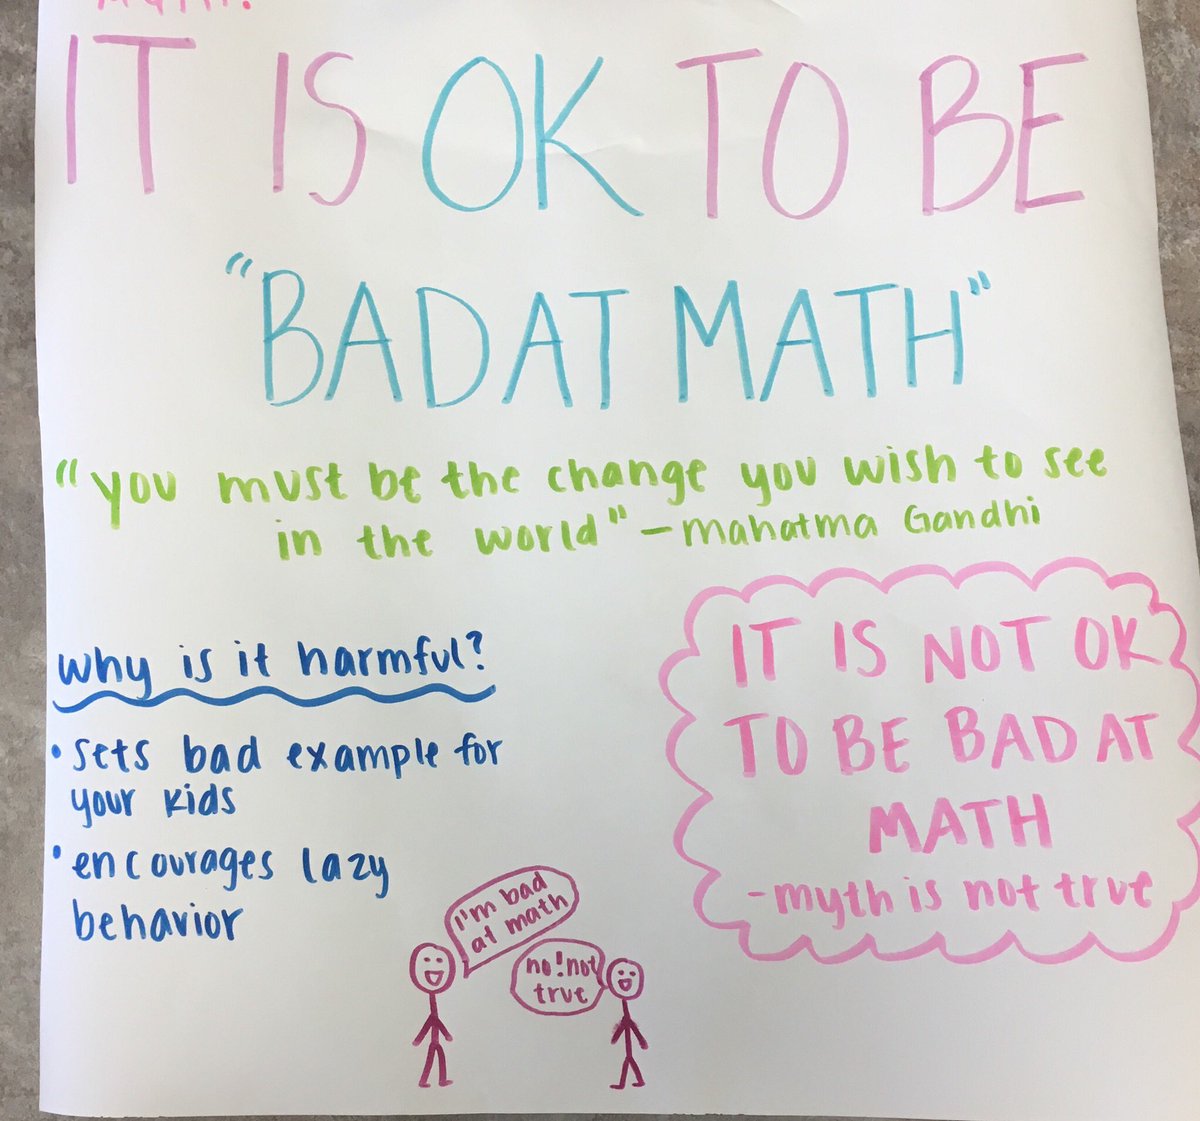 IT IS OK TO BE
"BAD AT MATH"
"you must be the change you wish to see
in the world" - Mahatma Gandhi
why is it harmful?
• sets bad example for
your kids
• encourages lazy
behavior
IT IS NOT OK
TO BE BAD AT
MATH
- myth is not true
I'm bad
at math
no! not
true